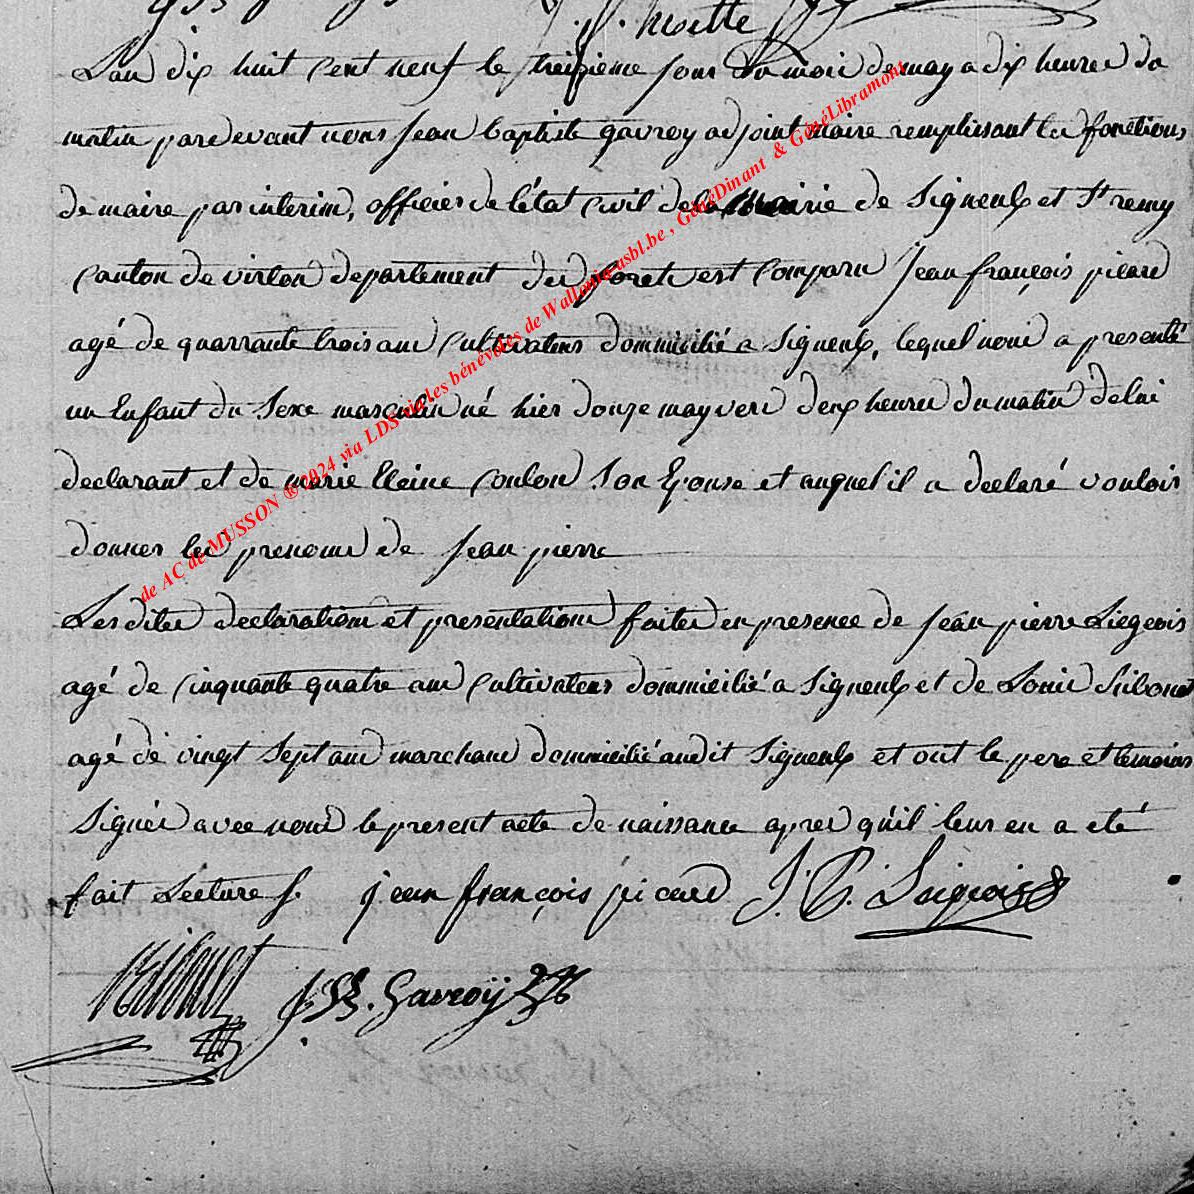 J. P. Motte
Lan dix huit cent neuf le treizieme jour du mois de may a dix heures du
matin pardevant nous jean baptiste gavroy adjoint maire remplissant les fonctions
de maire par interim, officier de l'état civil de la Mairie de Signeulx et St remy
canton de virton departement des forets est comparu jean françois picard
agé de quarrante trois ans cultivateur dommicilié a Signeulx, lequel nous a presenté
un Enfant du Sexe masculin né hier douze may vers deux heures du matin de lui
declarant et de marie Coulon Son Epouse et auquel il a declaré vouloir
donner les prenoms de jean pierre
Les dites declarations et presentations faites en presence de jean pierre Liegeois
agé de cinquante quatre ans cultivateur dommicilié a Signeulx et de Louis
agé de vingt Sept ans marchand dommicilié audit Signeulx et ont le pere et temoins
Signés avec nous le present acte de naissance apres qu'il leur en a eté
fait Lecture J. jean françois picard J. P. Liegeois
J. B. Gavroÿ
de AC de MUSSON ® 2024 via LDS via les bénévoles de Wallonia-asbl.be , GénéDinant & GénéLibramont